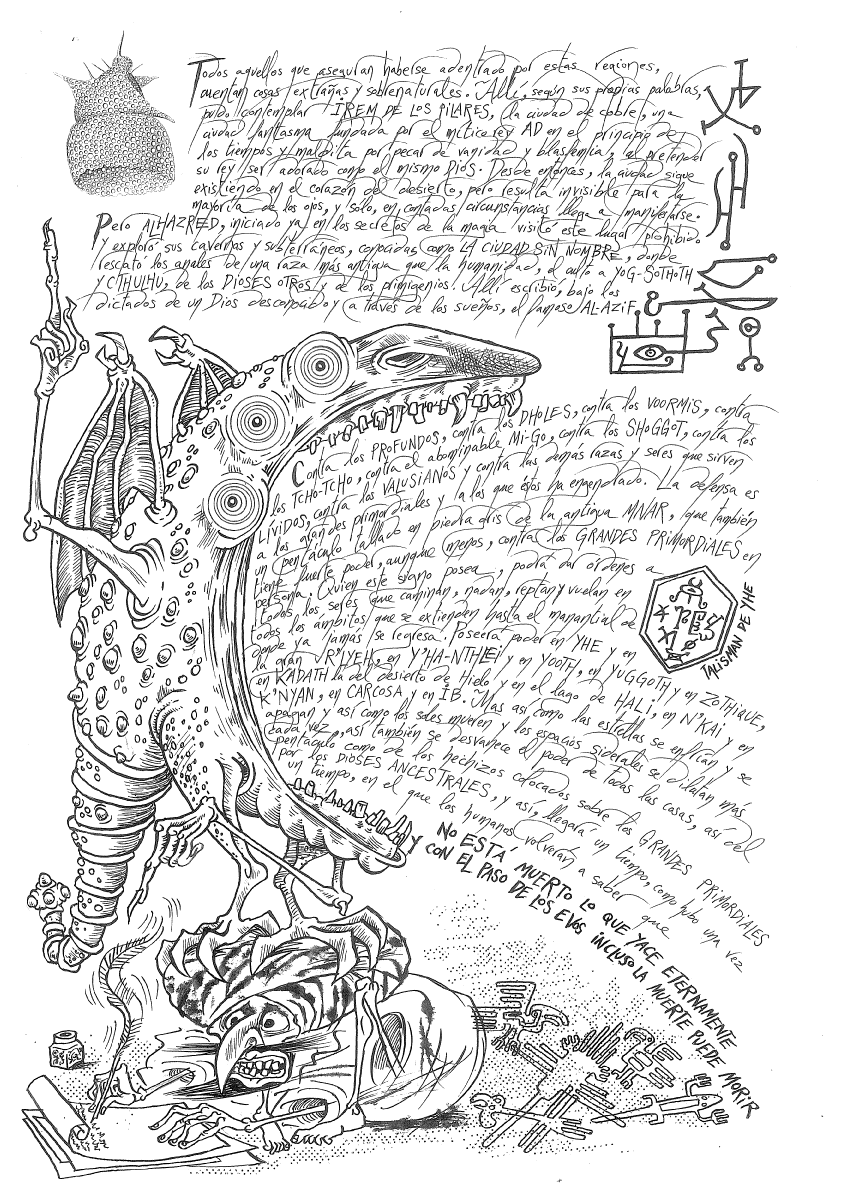 Todos aquellos que aseguran haberse adentrado por estas regiones,
cuentan cosas extrañas y sobrenaturales. Allí, según sus propias palabras,
pudo contemplar IREM DE LOS PILARES, la ciudad de cobre, una
ciudad fantasma fundada por el mítico rey AD en el principio de
los tiempos y maldita por pecar de vanidad y blasfemia, al pretender
su rey ser adorado como el mismo Dios. Desde entonces, la ciudad sigue
existiendo en el corazón del desierto, pero resulta invisible para la
mayoría de los ojos, y solo, en contadas circunstancias llega a manifestarse.
Pero ALHAZRED, iniciado ya en los secretos de la magia visitó este lugar prohibido
y exploró sus cavernas y subterráneos, conocidas como LA CIUDAD SIN NOMBRE, donde
rescató los anales de una raza más antigua que la humanidad, el culto a YOG-SOTHOTH
y CTHULHU, de los DIOSES OTROS y de los primigenios. Allí escribió, bajo los
dictados de un Dios desconocido y a través de los sueños, el famoso AL-AZIF.
Contra los PROFUNDOS, contra los DHOLES, contra los VOORMIS, contra
los TCHO-TCHO, contra el abominable Mi-Go, contra los SHOGGOT, contra los
LÍVIDOS, contra los VALUSIANOS y contra las demás razas y seres que sirven
a los grandes primordiales y a los que éstos ha engendrado. La defensa es
un pentáculo tallado en piedra gris de la antigua MNAR, que también
tiene fuerte poder, aunque menos, contra los GRANDES PRIMORDIALES en
persona. Quien este signo posea, podrá dar órdenes a
todos los seres que caminan, nadan, reptan y vuelan en
todos los ámbitos que se extienden hasta el manantial de
donde ya jamás se regresa. Poseerá poder en YHE y en
la gran R'LYEH, en Y'HA-NTHLEI y en YOOTH, en YUGGOTH y en ZOTHIQUE,
en KADATH la del desierto de Hielo y en el lago de HALI, en N'KAI y en
K'NYAN, en CARCOSA y en IB. Mas así como las estrellas se enfrían y se
apagan y así como los soles mueren y los espacios siderales se dilatan más
cada vez, así también se desvanece el poder de todas las cosas, así del
pentáculo como de los hechizos colocados sobre los GRANDES PRIMORDIALES
por los DIOSES ANCESTRALES, y así, llegará un tiempo, como hubo una vez
un tiempo, en el que los humanos volverán a saber que
NO ESTÁ MUERTO LO QUE YACE ETERNAMENTE
Y CON EL PASO DE LOS EVOS INCLUSO LA MUERTE PUEDE MORIR
TALISMAN DE YHE